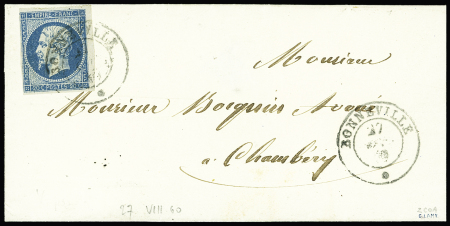 EMPIRE FRANC
BONNEVILLE
Monsieur
Monsieur Boiquin Avoué
à Chambéry
BONNEVILLE
27
27 VIII 60